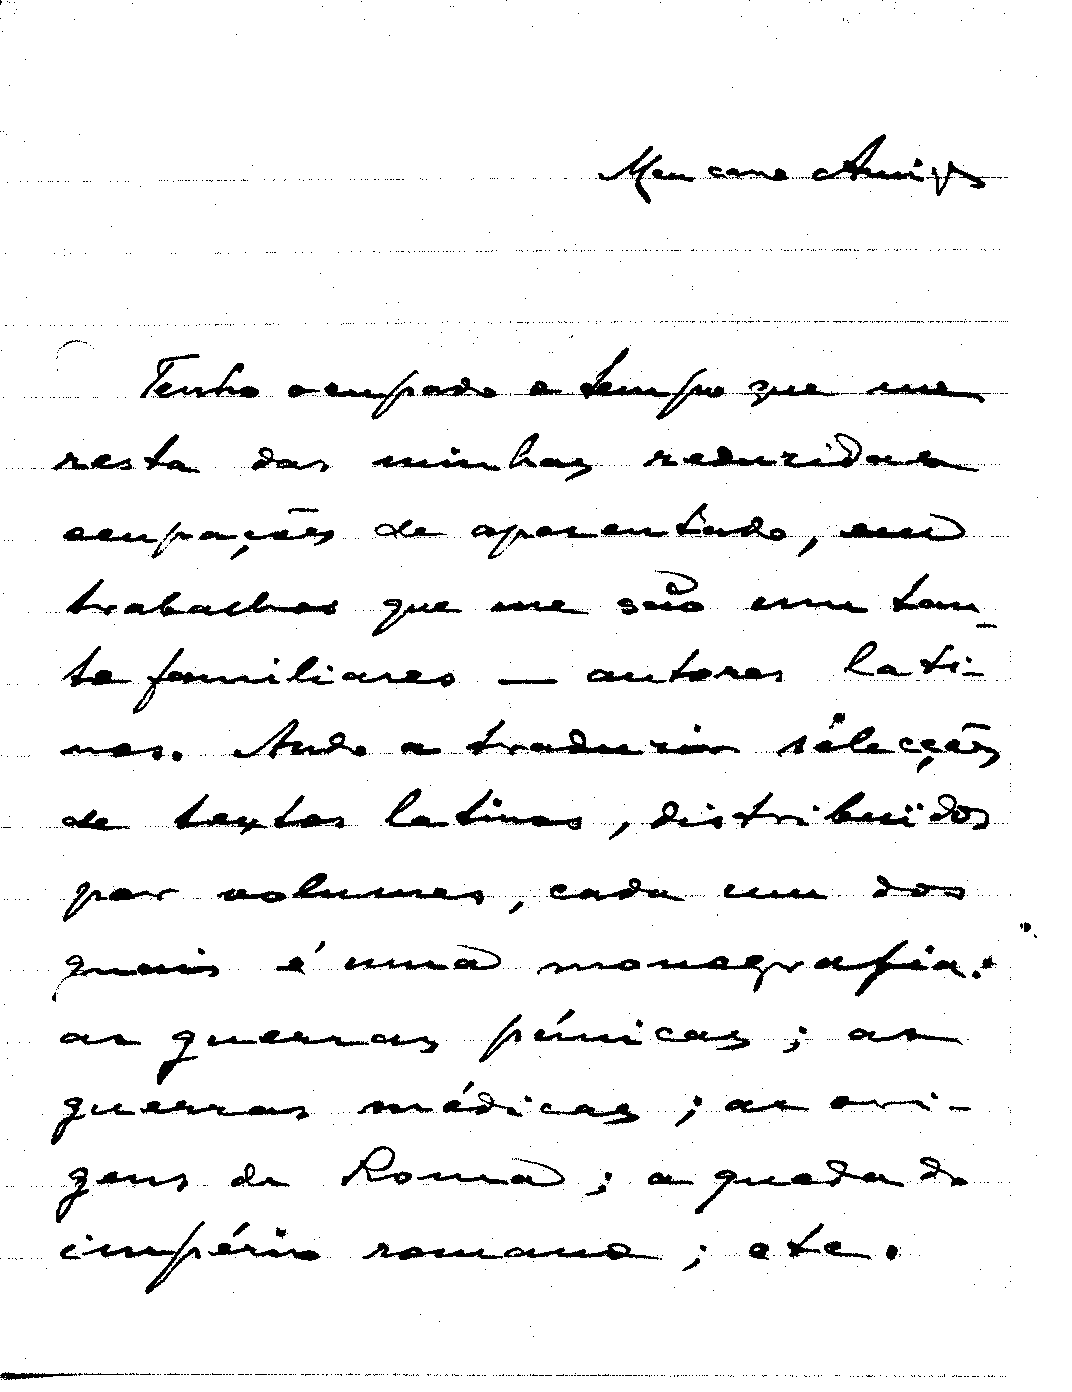 Meu caro Amigo
Tenho ocupado o tempo que me
resta das minhas reduzidas
ocupações de aposentado, em
trabalhos que me são um tan-
to familiares — autores lati-
nos. Ando a traduzir selecções
de textos latinos, distribuïdos
por volumes, cada um dos
quais é uma monografia:
as guerras púnicas; as
guerras médicas; as ori-
gens de Roma; a queda do
império romano; etc.